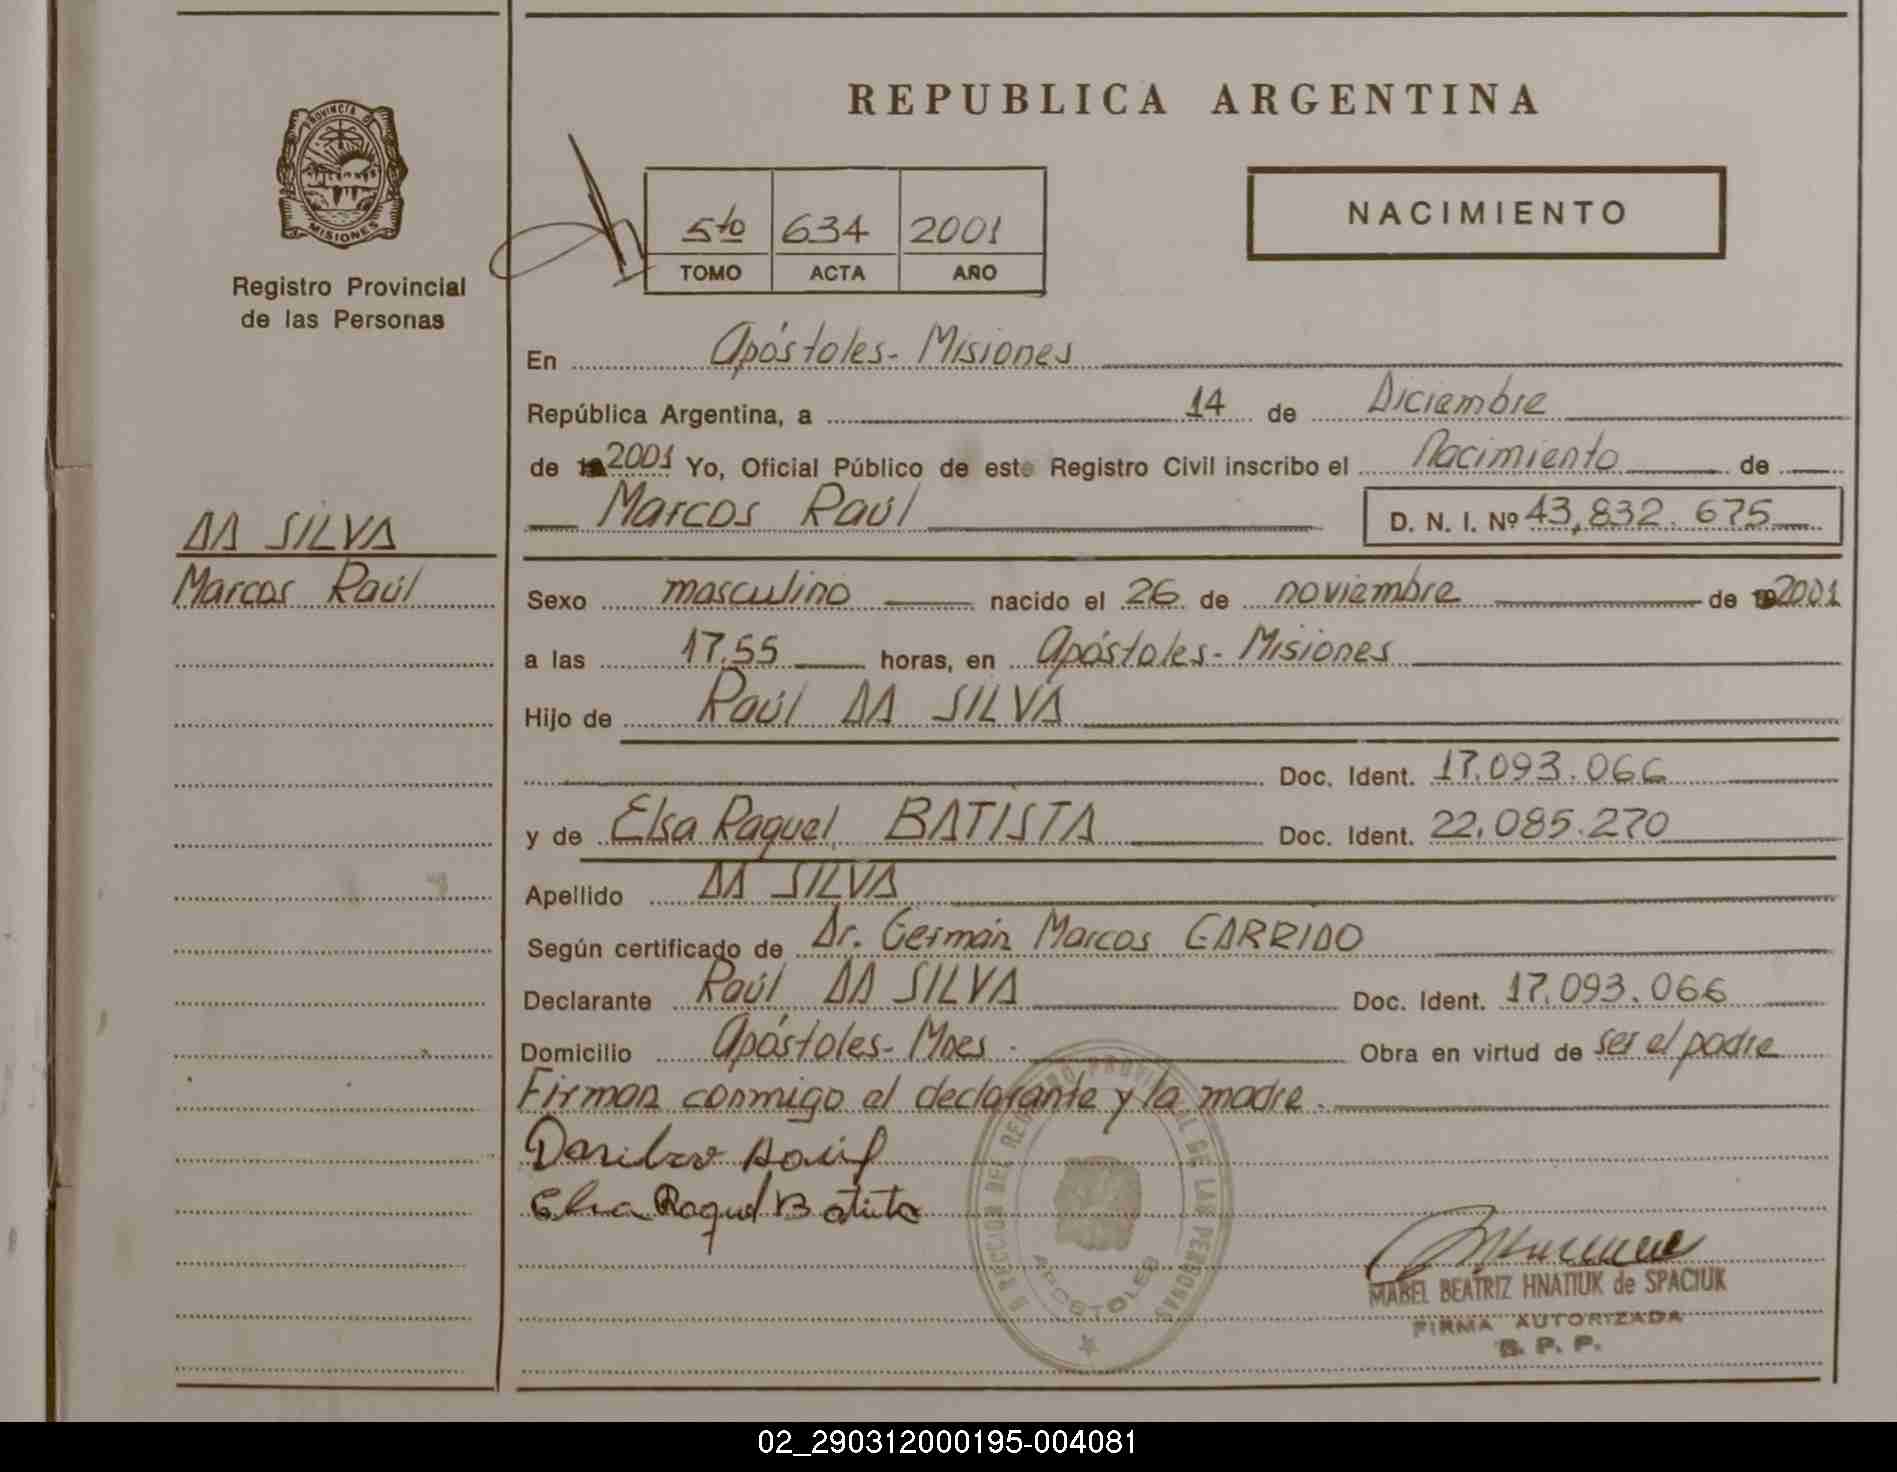 REPUBLICA ARGENTINA
PROVINCIA D
MISIONES
Registro Provincial
de las Personas
5to 634 2001
TOMO ACTA AÑO
NACIMIENTO
En Apóstoles - Misiones
República Argentina, a 14 de Diciembre
de 2001 Yo, Oficial Público de este Registro Civil inscribo el Nacimiento de
Marcos Raúl D. N. I. Nº 43,832.675
DA SILVA
Marcos Raúl
Sexo masculino nacido el 26 de noviembre de 2001
a las 17.55 horas, en Apóstoles - Misiones
Hijo de Raúl DA SILVA
Doc. Ident. 17.093.066
y de Elsa Raquel BATISTA Doc. Ident. 22.085.270
Apellido DA SILVA
Según certificado de Dr. Germán Marcos GARRIDO
Declarante Raúl DA SILVA Doc. Ident. 17.093.066
Domicilio Apóstoles - Mnes. Obra en virtud de ser el padre
Firman conmigo el declarante y la madre.
Elsa Raquel Batista
DIRECCION DEL REGISTRO PROVINCIAL DE LAS PERSONAS
APOSTOLES
MABEL BEATRIZ HNATIUK de SPACIUK
FIRMA AUTORIZADA
R. P. P.
02_290312000195-004081